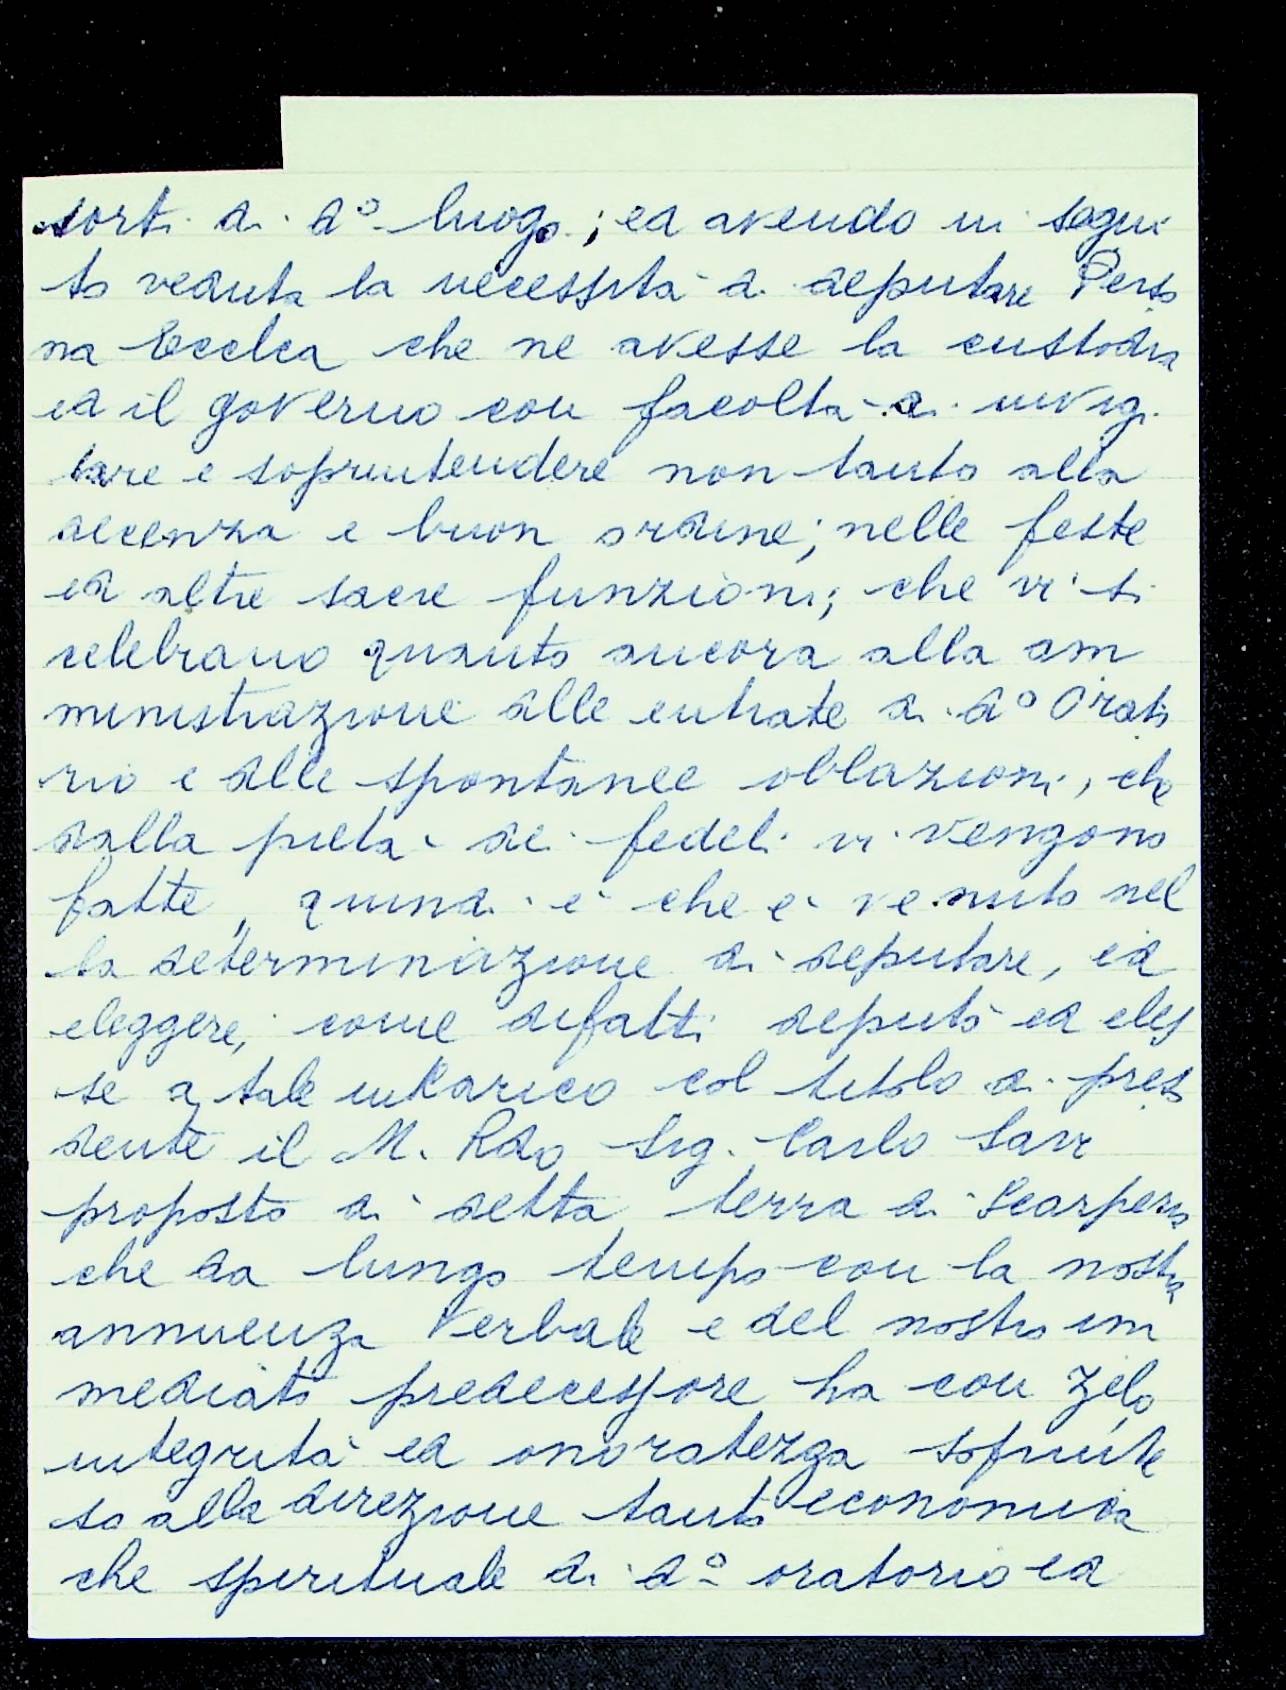 sorti di do luogo; ed avendo in segui
to veduta la necessità di deputare Perso
na Ecclca che ne avesse la custodia
ed il governo con facoltà di invigi
lare e soprintendere non tanto alla
decenza e buon ordine; nelle feste
ed altre sacre funzioni; che vi si
celebrano quanto ancora alla am
ministrazione alle entrate di do Orato
rio e alle spontanee oblazioni, che
dalla pietà dei fedeli vi vengono
fatte, quindi è che è venuto nel
la determinazione di deputare, ed
eleggere, come difatti deputò ed eles
se a tale inkarico col titolo di presi
dente il M. Rdo Sig. Carlo Savi
proposto di detta terra di Scarperia
che da lungo tempo con la nostra
annuenza verbale e del nostro im
mediato predecessore ha con zelo,
integrità ed onoratezza soprinte
so alla direzione tanto economica
che spirituale di do oratorio ed